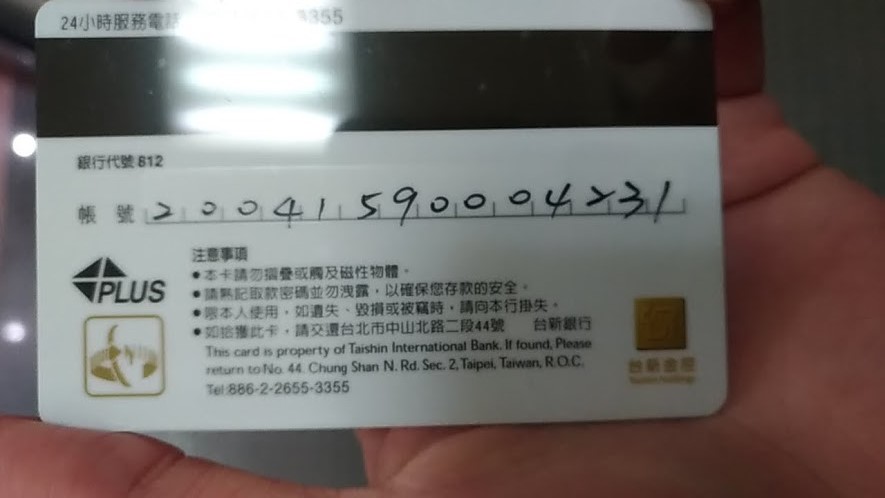 24小時服務電話 3355
銀行代號 812
帳號 20041590004231
PLUS
注意事項
●本卡請勿摺疊或觸及磁性物體。
●請熟記取款密碼並勿洩露,以確保您存款的安全。
●限本人使用,如遺失、毀損或被竊時,請向本行掛失。
●如拾獲此卡,請交還台北市中山北路二段44號 台新銀行
This card is property of Taishin International Bank. If found, Please
return to No. 44. Chung Shan N. Rd. Sec. 2, Taipei, Taiwan, R.O.C.
Tel:886-2-2655-3355
台新金控